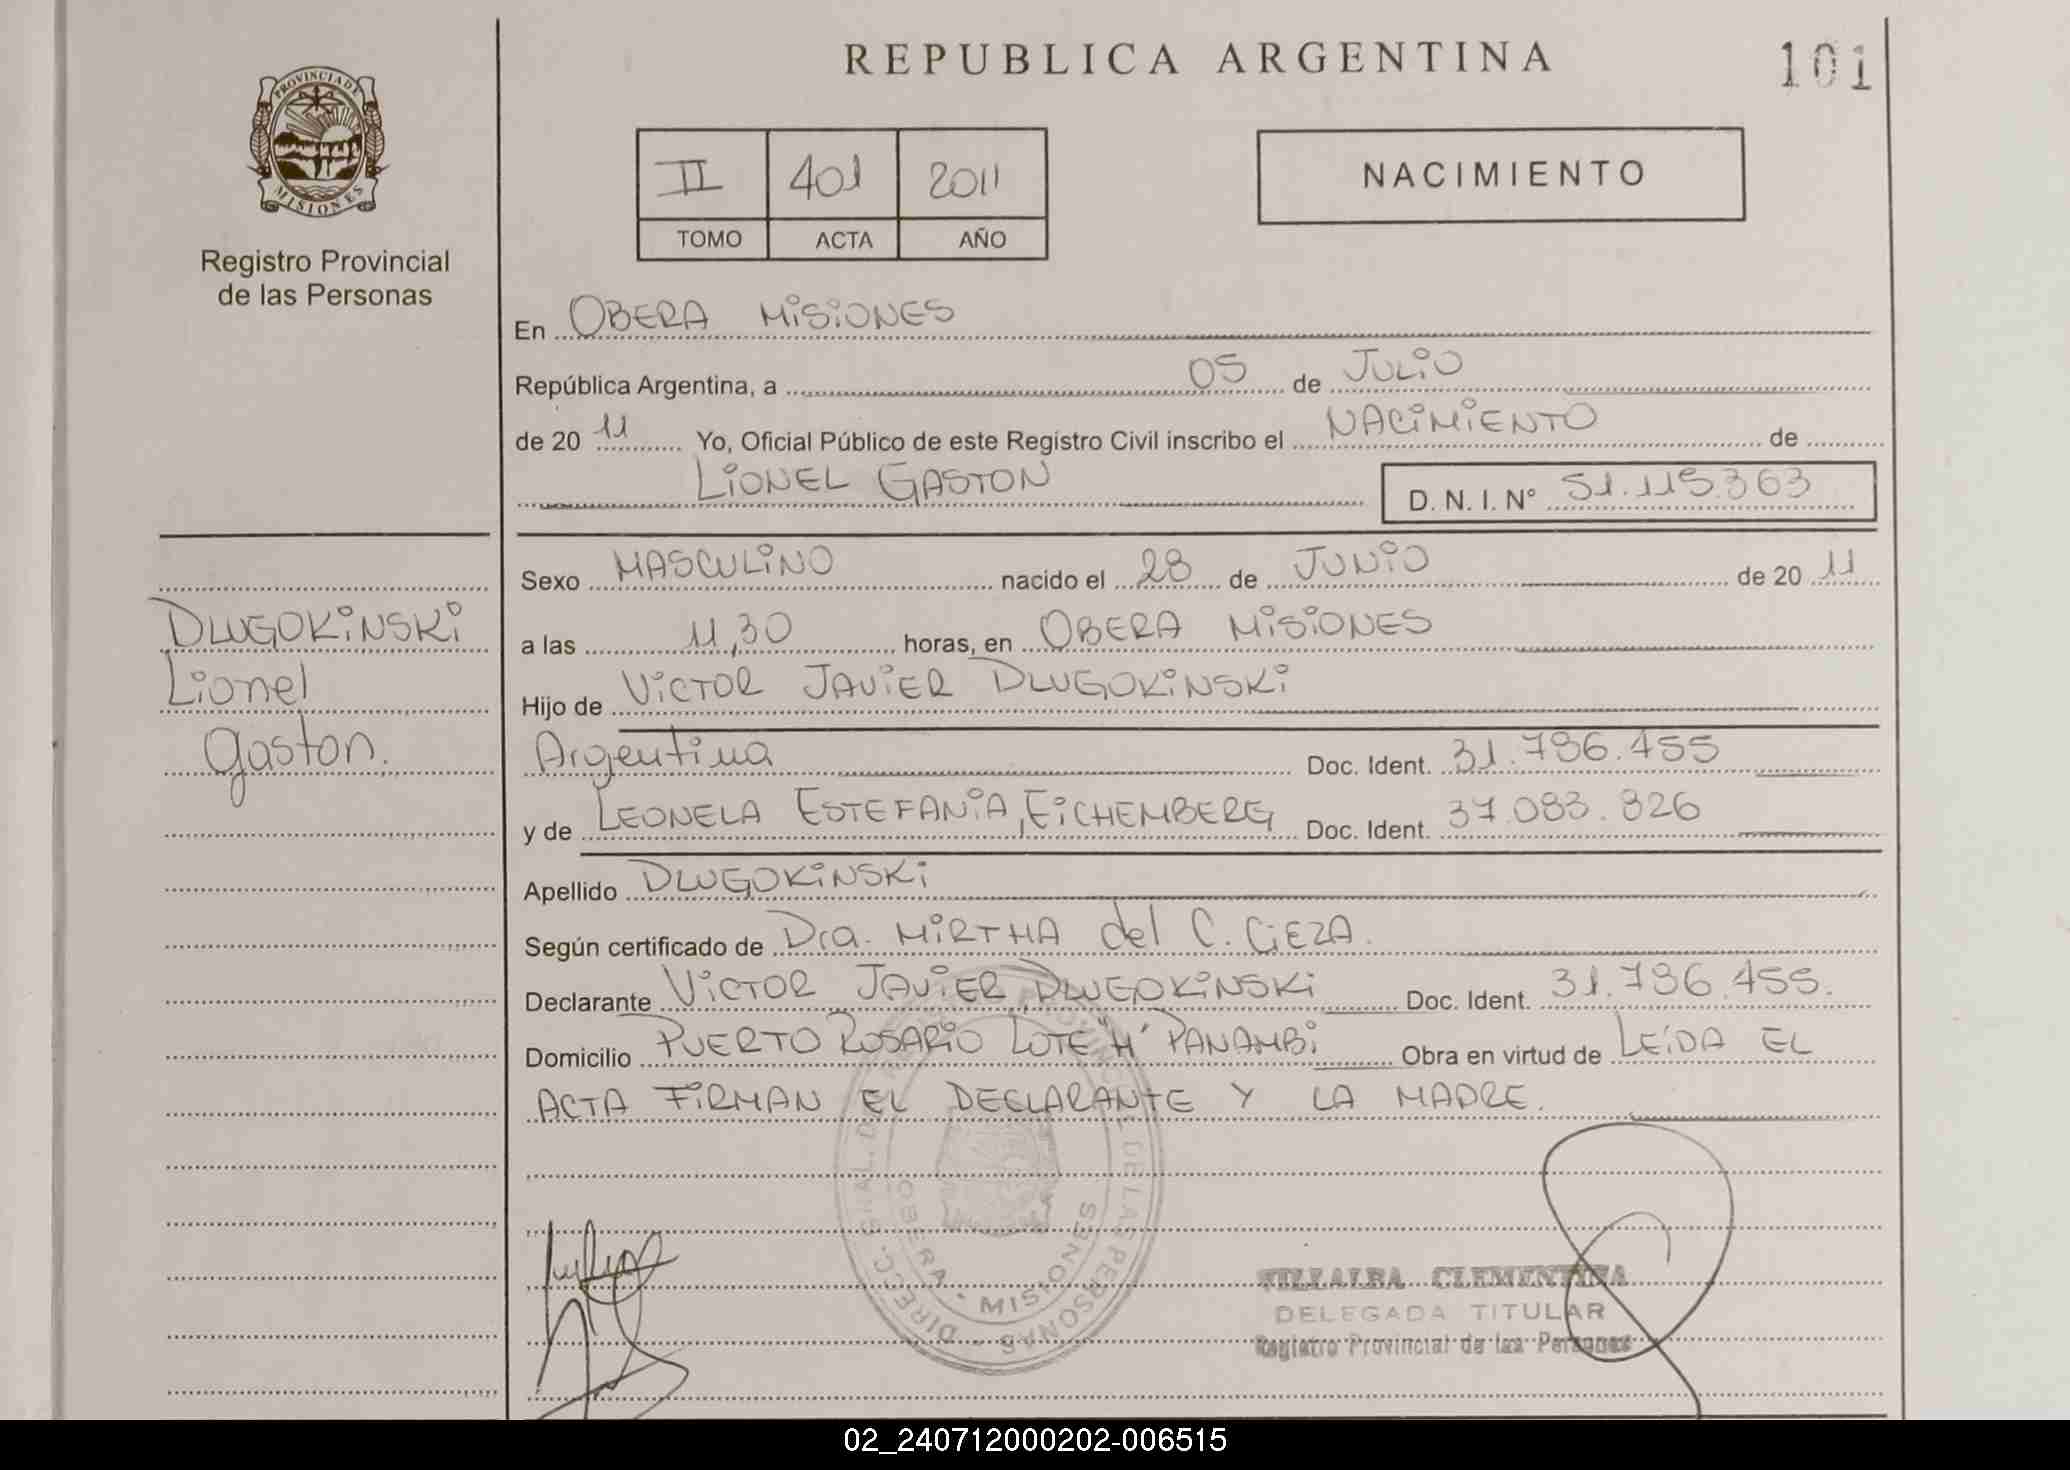 REPUBLICA ARGENTINA
101
PROVINCIA DE
MISIONES
Registro Provincial
de las Personas
II 401 2011
TOMO ACTA AÑO
NACIMIENTO
En OBERA MISIONES
República Argentina, a 05 de JULIO
de 20 11 Yo, Oficial Público de este Registro Civil inscribo el NACIMIENTO de
LIONEL GASTON D. N. I. N° 51.115.363
Sexo MASCULINO nacido el 28 de JUNIO de 20 11
a las 11,30 horas, en OBERA MISIONES
Hijo de VICTOR JAVIER DLUGOKINSKI
Argentina Doc. Ident. 31.796.455
y de LEONELA ESTEFANIA, EICHEMBERG Doc. Ident. 37.083.826
Apellido DLUGOKINSKI
Según certificado de Dra. MIRTHA del C. CIEZA.
Declarante VICTOR JAVIER DLUGOKINSKI Doc. Ident. 31.796.455.
Domicilio PUERTO ROSARIO LOTE "H" PANAMBI Obra en virtud de LEIDA EL
ACTA FIRMAN EL DECLARANTE Y LA MADRE.
DLUGOKINSKI
Lionel
Gaston.
DIRECC. GRAL. DEL REGISTRO PROVINCIAL DE LAS PERSONAS
OBERA - MISIONES
VILLALBA CLEMENTINA
DELEGADA TITULAR
Registro Provincial de las Personas
02_240712000202-006515